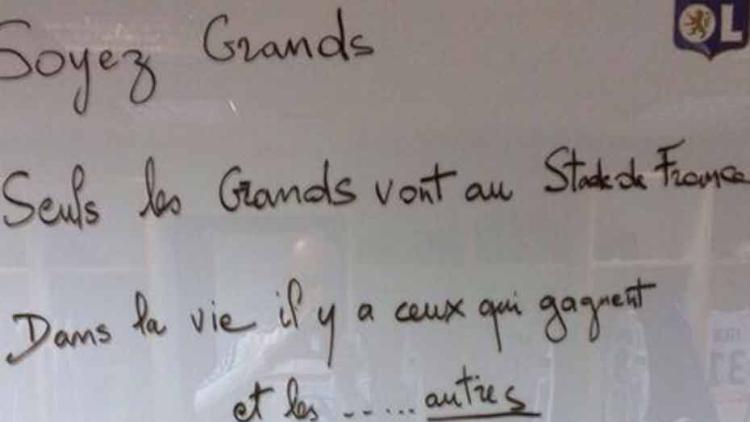 OL
Soyez Grands
Seuls les Grands vont au Stade de France
Dans la vie il y a ceux qui gagnent
et les ...... autres